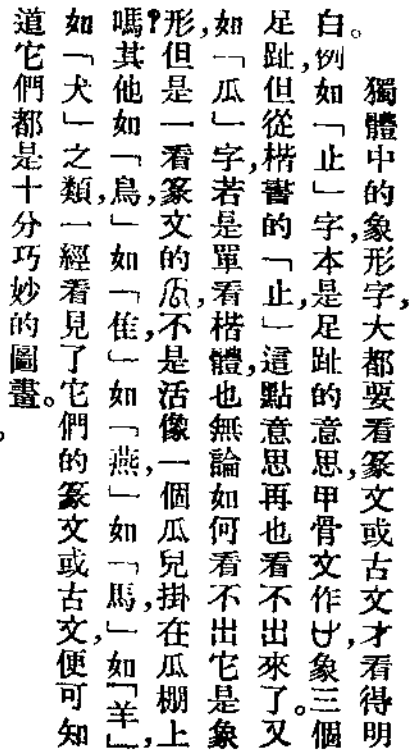 獨體中的象形字，大都要看篆文或古文才看得明
白。例如「止」字，本是足趾的意思，甲骨文作，象三個
足趾，但從楷書的「止」，這點意思再也看不出來了。又
如「瓜」字，若是單看楷體，也無論如何看不出它是象
形，但是一看篆文的，不是活像一個瓜兒掛在瓜棚上
嗎？其他如「鳥」如「隹」如「燕」如「馬」如「羊」，
如「犬」之類，一經看見了它們的篆文或古文，便可知
道它們都是十分巧妙的圖畫。